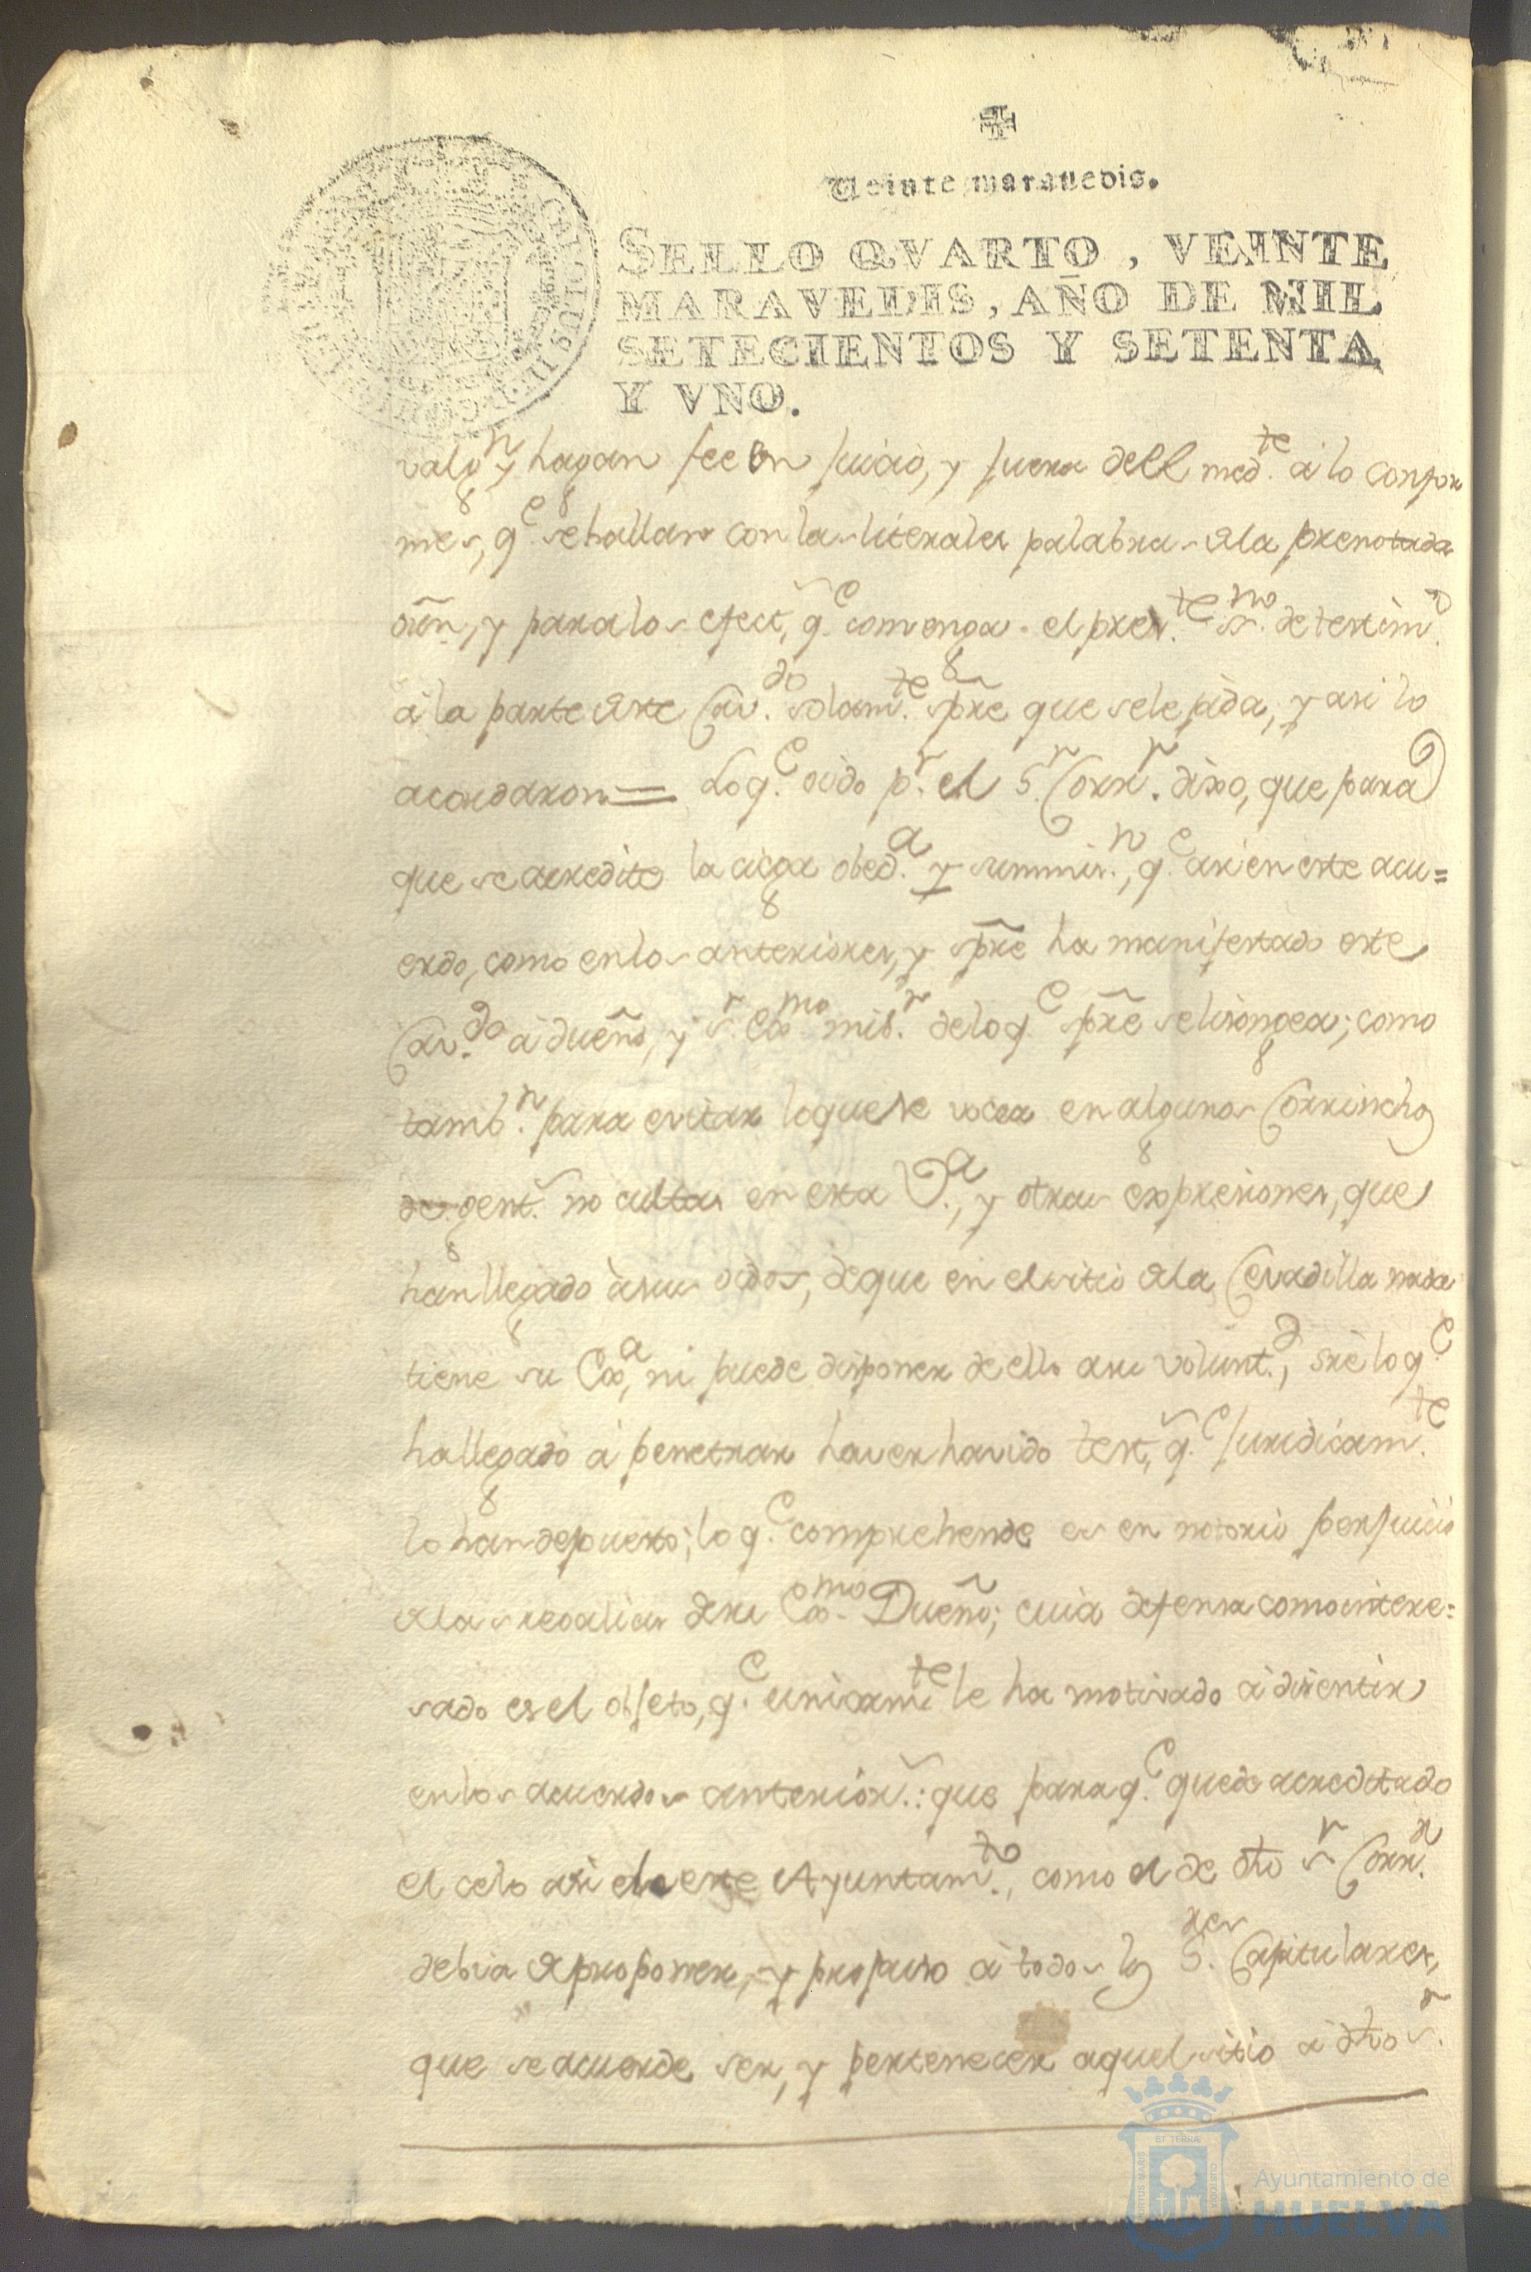 Veinte maravedis.
SELLO QVARTO, VEINTE
MARAVEDIS, AÑO DE MIL
SETECIENTOS Y SETENTA
Y VNO.
CAROLUS III D G
valgn y hagan fee en juicio, y fuera dell med.te à lo confor
mes, q.e se hallan con las literales palabras de la prenotada
orñ, y para los efect.s q.e combenga el pres.te ss.no de testim.o
à la parte deste Cav.do solam.te spre que sele pida, y asi lo
acordaron = Loq.e oido p.r el S.r Corr.r dixo, que para
que se acredite la ciega obed.a y summis.n, q.e asi en este acu=
erdo, como en los anteriores, y spre ha manifestado este
Cav.do à dueño, y s.r Exmo mis.r de lo q.e spre se lisongea; como
tamb.n para evitar lo que se vocea en algunos Corrinchos
de gent.s no cultas en esta V.a, y otras expresiones, que
han llegado à sus oidos, de que en el sitio de la Cevadilla nada
tiene su Exa, ni puede disponer de ello a su volunt.d, sre lo q.e
ha llegado à penetrar haver havido test.s q.e juridicam.te
lo han depuesto; lo q.e comprehende es en notorio perjuicio
de las regalias de su Exmo Dueño; cuia defensa como intere=
sado es el objeto, q.e unicam.te le ha motivado à disentir
en los acuerdos anterior.s: que para q.e quede acreditado
el celo asi de este Ayuntam.to, como el de dho s.r Corr.r
debia de proponer, y propuso à todos los S.res Capitulares,
que se acuerde ser, y pertenecer aquel sitio à dho s.r
Ayuntamiento de
HUELVA